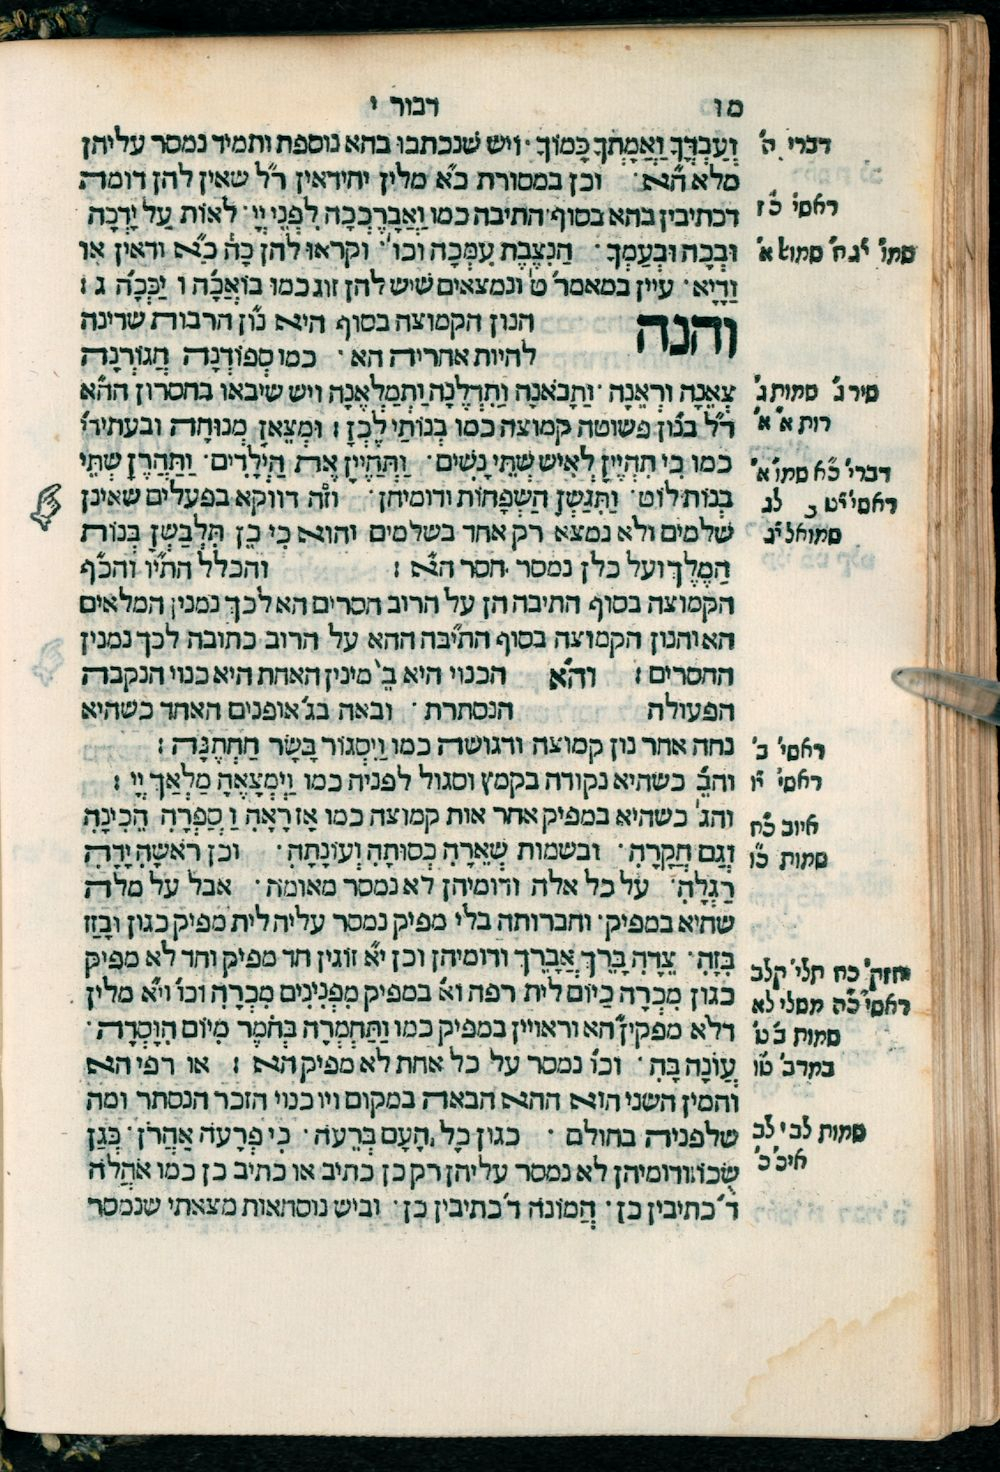 מו דבור י
וְעַבְדְּךָ וַאֲמָתְךָ כָּמוֹךָ · ויש שנכתבו בהא נוספת ותמיד נמסר עליהן
מלא ה״א · וכן במסורת כ״א מלין יחידאין ר״ל שאין להן דומה
דכתיבין בהא בסוף התיבה כמו וַאֲבָרֶכְכָה לִפְנֵי יְיָ · לְאוֹת עַל יָדְכָה
וּבְכָה וּבְעַמְךָ · הַנִצֶּבֶת עִמְּכָה וכו׳ · וקראו להן כָּה֯ כ״א ודאין או
וַדָיָא · עיין במאמר ט׳ ונמצאים שיש להן זוג כמו בוֹאֲכָ֯ה ו יַכֶּכָּ֯ה ג :
והנה הנון הקמוצה בסוף היא נ״ון הרבות שדינה
להיות אחריה הא · כמו סְפוֹדְנָה חֲגוֹרְנָה
צְאֶנָה וּרְאֶנָה · וַתָּבֹאנָה וַתִּדְלֶנָה וַתְּמַלֶאנָה ויש שיבאו בחסרון הה״א
ר״ל בנ״ון פשוטה קמוצה כמו בְנוֹתַי לֵכְןָ : וּמְצֶאןָ מְנוּחָה ובעתיד׳
כמו כִּי תִהְיֶיןָ לְאִישׁ שְׁתֵּי נָשִׁים · וַתִּחְיֶיןָ אֶת הַיְלָדִים · וַתַּהֲרֶןָ שְׁתֵּי
בְנוֹת לוֹט · וַתִּגַּשְׁןָ הַשְׁפָחוֹת ודומיהן · וז״ה דווקא בפעלים שאינן
שלמים ולא נמצא רק אחד בשלמים והוא כִּי כֵן תִּלְבַּשְׁןָ בְּנוֹת
הַמֶּלֶךְ ועל כלן נמסר חסר ה״א : והכלל הת״יו והכ״ף
הקמוצה בסוף התיבה הן על הרוב חסרים הא לכך נמנין המלאים
הא והנון הקמוצה בסוף התיבה ההא על הרוב כתובה לכך נמנין
החסרים : וה״א הכנוי היא ב׳ מינין האחת היא כנוי הנקבה
הפעולה הנסתרת · ובאה בג׳ אופנים האחד כשהיא
נחה אחר נון קמוצה ודגושה כמו וַיִסְגוֹר בָּשָׂר תַּחְתֶּנָּה :
והב״ כשהיא נקודה בקמץ וסגול לפניה כמו וַיִּמְצָאֶהָ מַלְאַךְ יְיָ :
והג׳ כשהיא במפיק אחר אות קמוצה כמו אָז רָאָהּ וַיְסַפְּרָהּ הֱכִינָהּ
וְגַם חֲקָרָהּ · ובשמות שְׁאֵרָהּ כְּסוּתָהּ וְעוֹנָתָהּ · וכן רֹאשָׁהּ יָדָהּ
רַגְלָהּ · על כל אלה ודומיהן לא נמסר מאומה · אבל על מלה
שהיא במפיק · וחברותה בלי מפיק נמסר עליה לית מפיק כגון וּבָזַז
בִּזָּהּ · צֵדָהּ בָּרֵךְ אֲבָרֵךְ ודומיהן וכן י״א זוגין חד מפיק וחד לא מפיק
כגון מִכְרָה כַיּוֹם לית רפה וא׳ במפיק מִפְּנִינִים מִכְרָהּ וכו׳ וי״א מלין
דלא מפקין ה״א וראויין במפיק כמו וַתַּחְמְרָה בַחֵמָר מִיּוֹם הִוָּסְדָה ·
עֲוֹנָה בָהּ · וכו׳ נמסר על כל אחת לא מפיק הא : או רפי הא
והמין השני הוא ההא הבאה במקום ויו כנוי הזכר הנסתר ומה
שלפניה בחולם · כגון כָל הָעָם בְּרֵעֹה · כִּי פְרָעֹה אַהֲרֹן · כְּגַן
שֻׂכּוֹ ודומיהן לא נמסר עליהן רק כן כתיב או כתיב כן כמו אָהֳלֹה
ד׳ כתיבין כן · הֲמוֹנֹה ד׳ כתיבין כן · וביש נוסחאות מצאתי שנמסר
דברי ה׳
ראשי׳ כ״ז
שמו׳ י״ג ח׳ שמוא׳ א׳
שיר ג׳ שמות ג׳
רות א׳ א׳
דברי׳ כ״א שמו׳ א׳
ראשי׳ י״ט לג
שמואל י״ג
ראשי׳ ב׳
ראשי׳ י״ו
איוב כ״ח
שמות כ״ו
יחזק׳ כ״ח תלי׳ קלב
ראשי׳ כ״ה משלי לא
שמות ב׳ ט׳
במדב׳ ט״ו
שמות לב׳ לב
איכ׳ ב׳